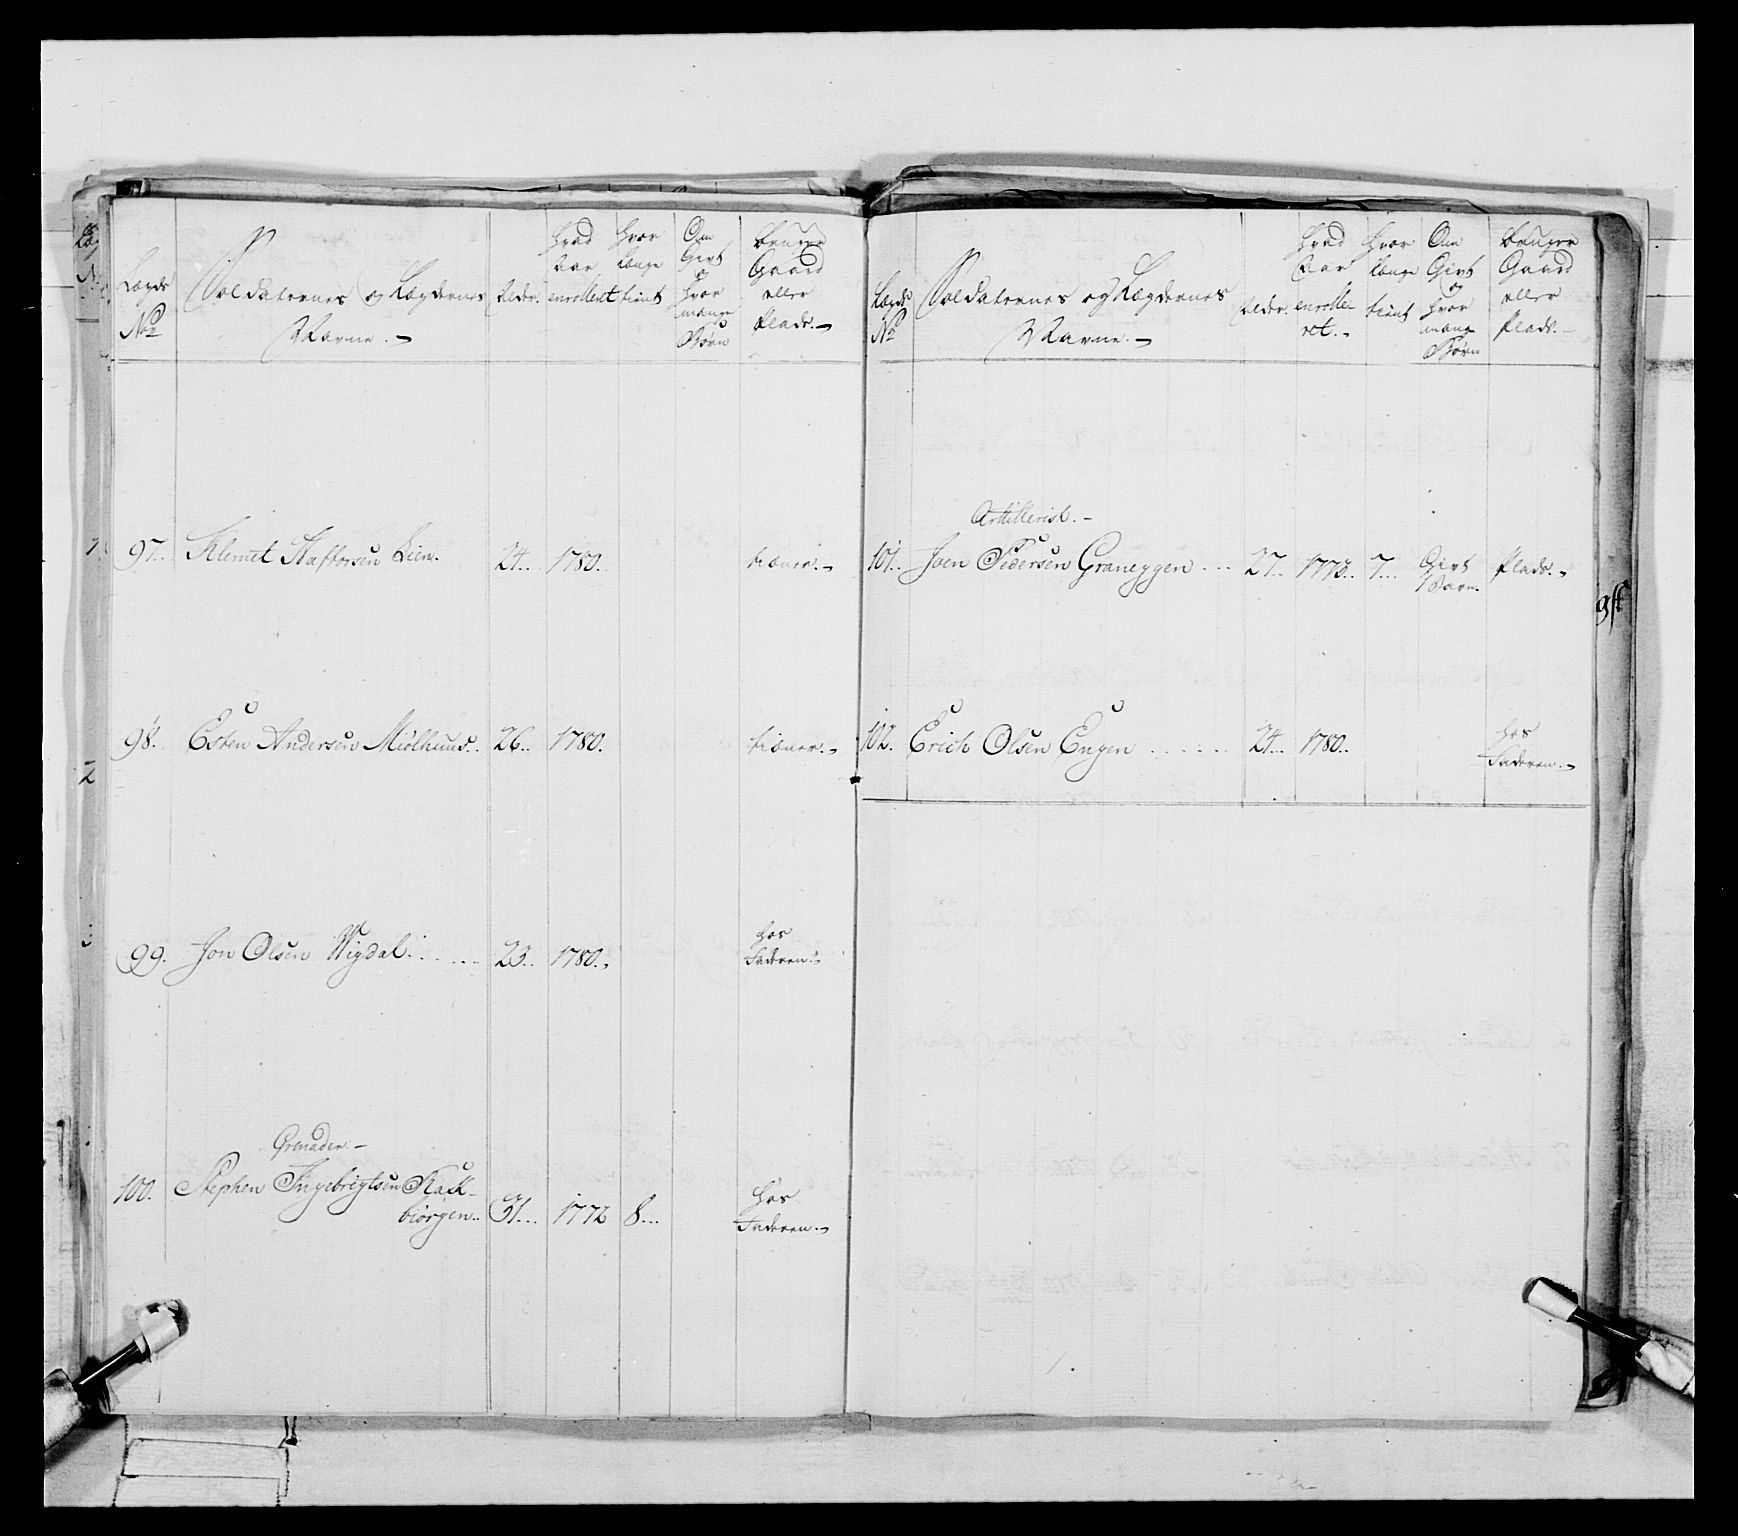 Lægds No
Soldaternes og Lægdernes Navne.
Alder.
hvad Aar enrolleret
hvor længe tient
Om Givt og hvor mange Børn
bruger Gaard eller Plads.
97. Klemet Haftorsen Lien. 24. 1780. tiener.
98. Esten Andersen Miølhuus. 26. 1780. tiener.
99. Jon Olsen Wigdal. 23. 1780. hos Faderen.
Grenader.
100. Stephen Ingebrigtsen Kaik-
biørgen. 31. 1772 8. hos Faderen.
Lægds No
Soldaternes og Lægdernes Navne.
Alder.
hvad Aar enrolle-
ret.
hvor længe tient
Om Givt og hvor mange Børn
bruger Gaard eller Plads.
Artillerist.
101. Joen Pedersen Graneggen 27. 1773. 7. Givt 1 Barn. Plads.
102. Erich Olsen Engen 24. 1780. hos Faderen.